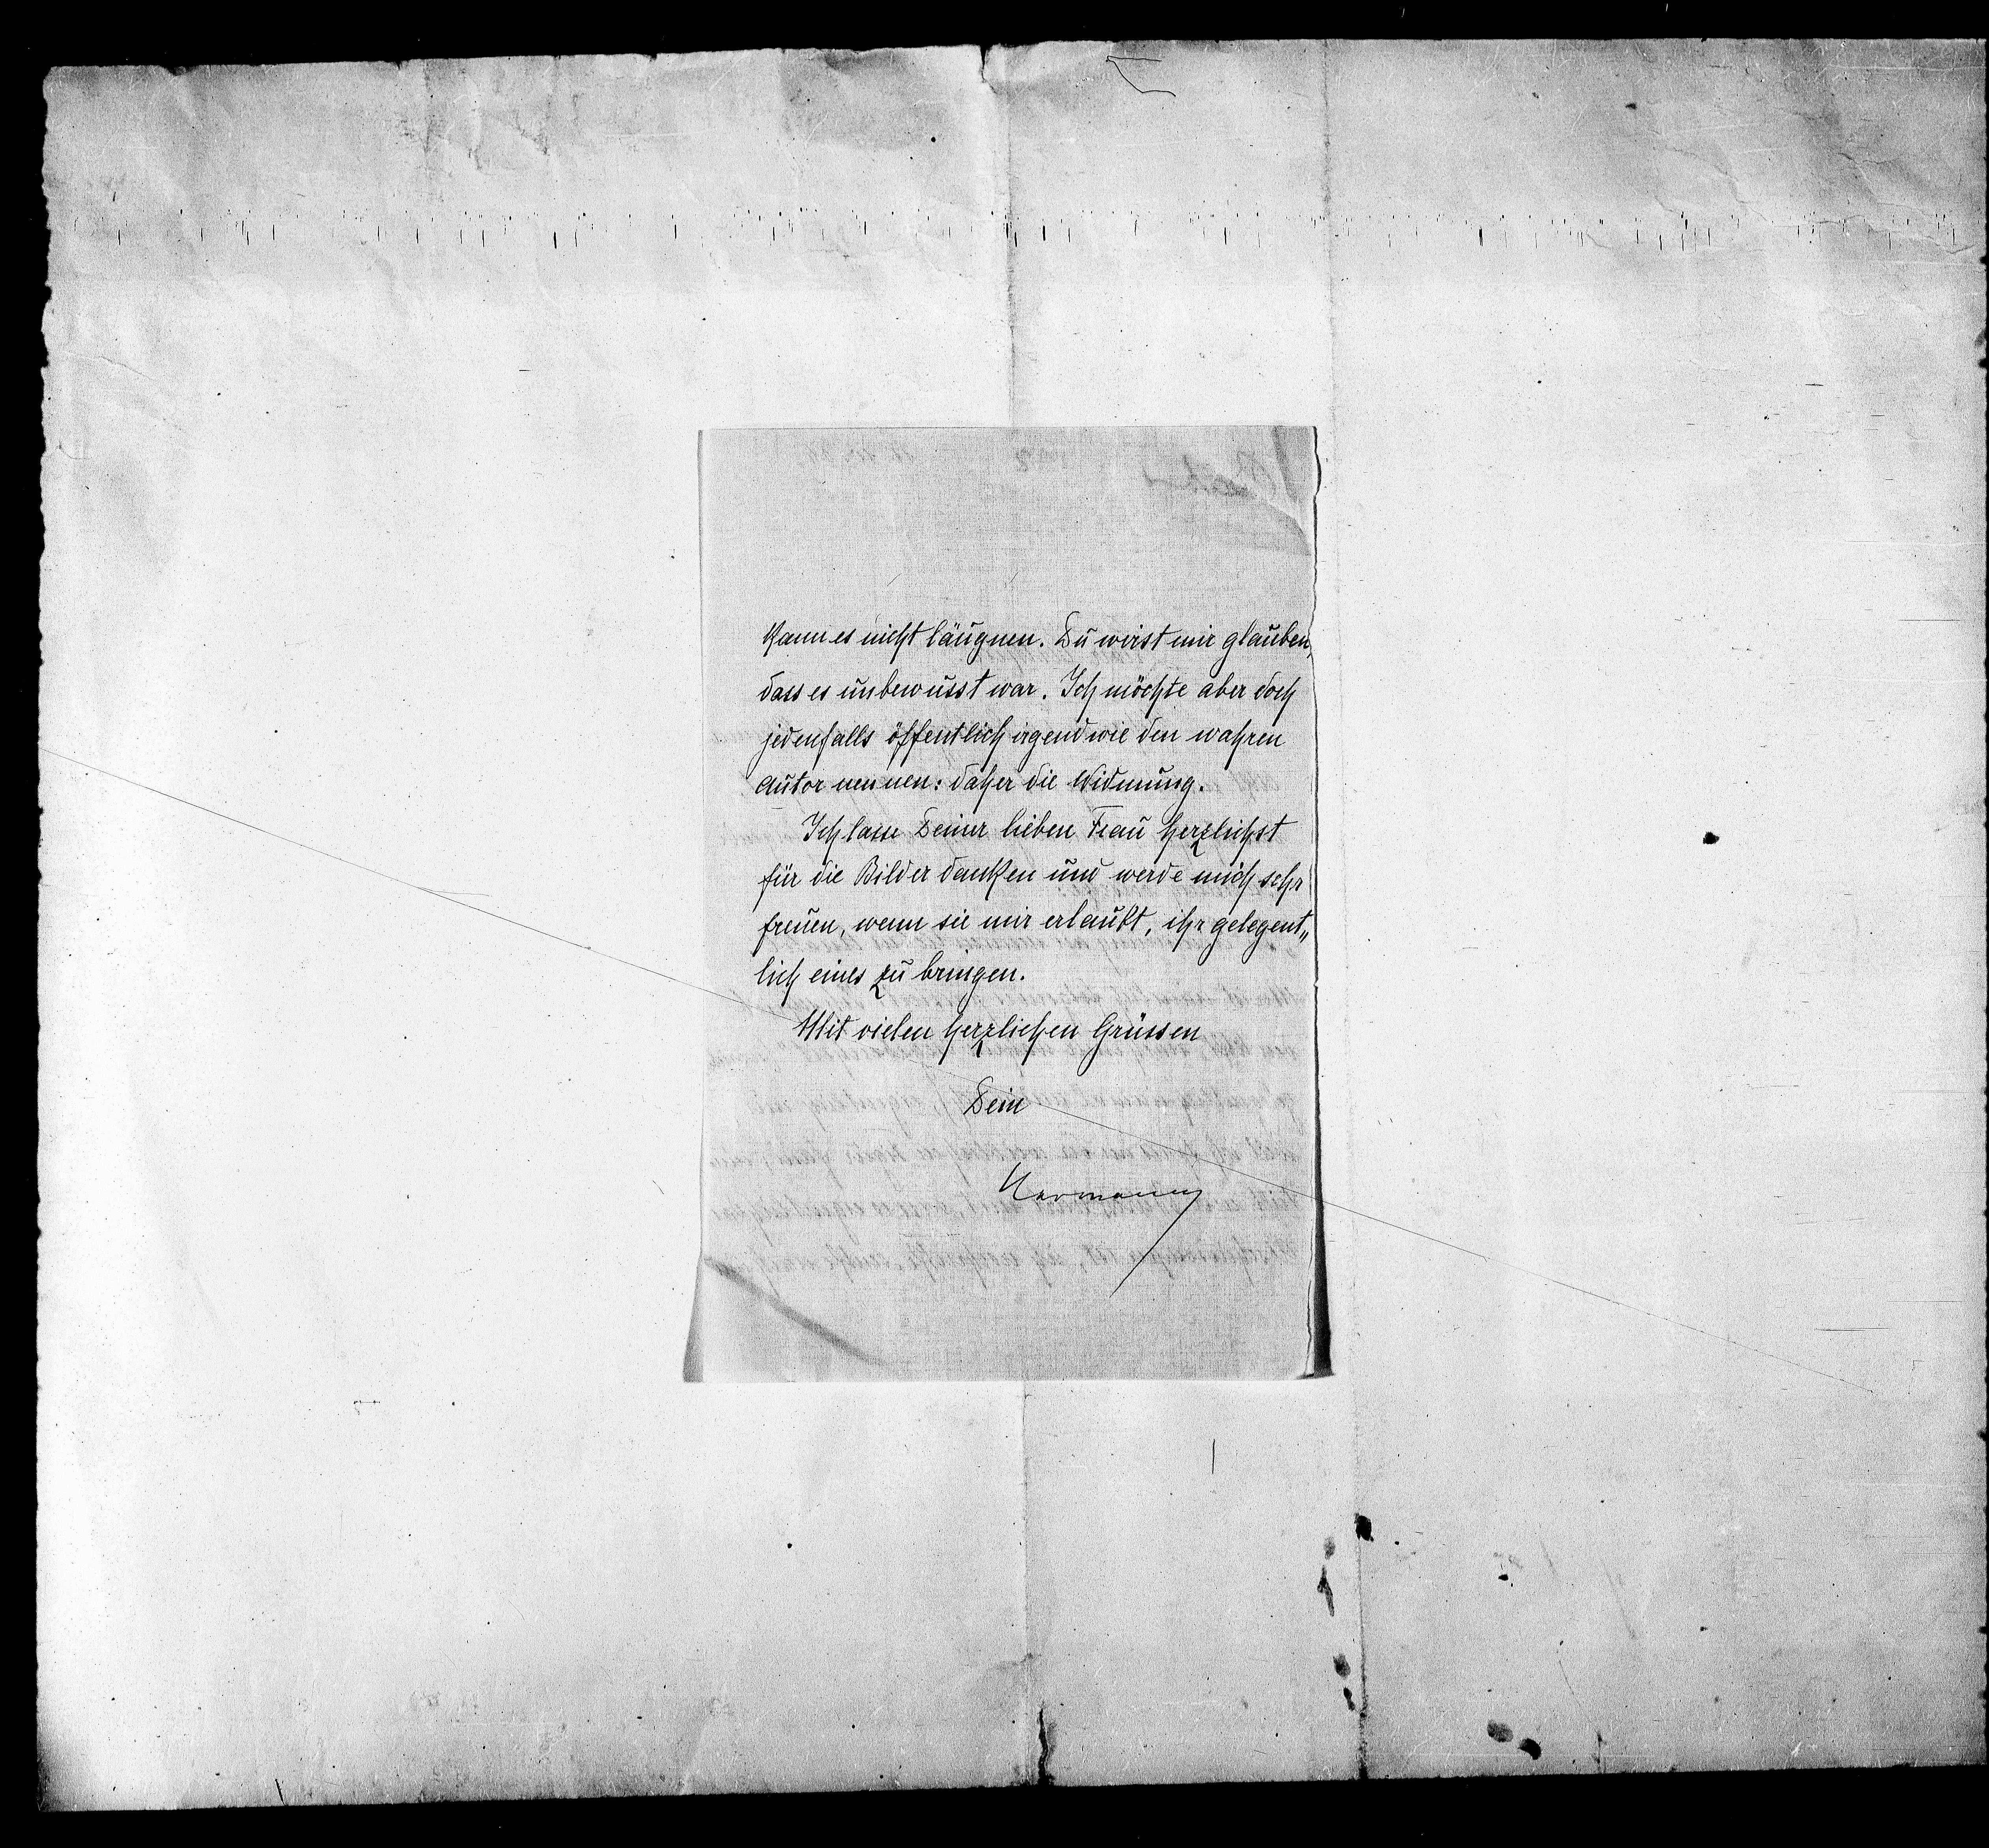 kann es nicht läugnen. Du wirst mir glauben,
dass es unbewusst war. Ich möchte aber doch
jedenfalls öffentlich irgendwie den wahren
Autor nennen: daher die Widmung.
Ich lasse Deiner lieben Frau herzlichst
für die Bilder danken und werde mich sehr
freuen, wenn sie mir erlaubt, ihr gelegent„
lich eines zu bringen.
Mit vielen herzlichen Grüssen
Dein
Hermann